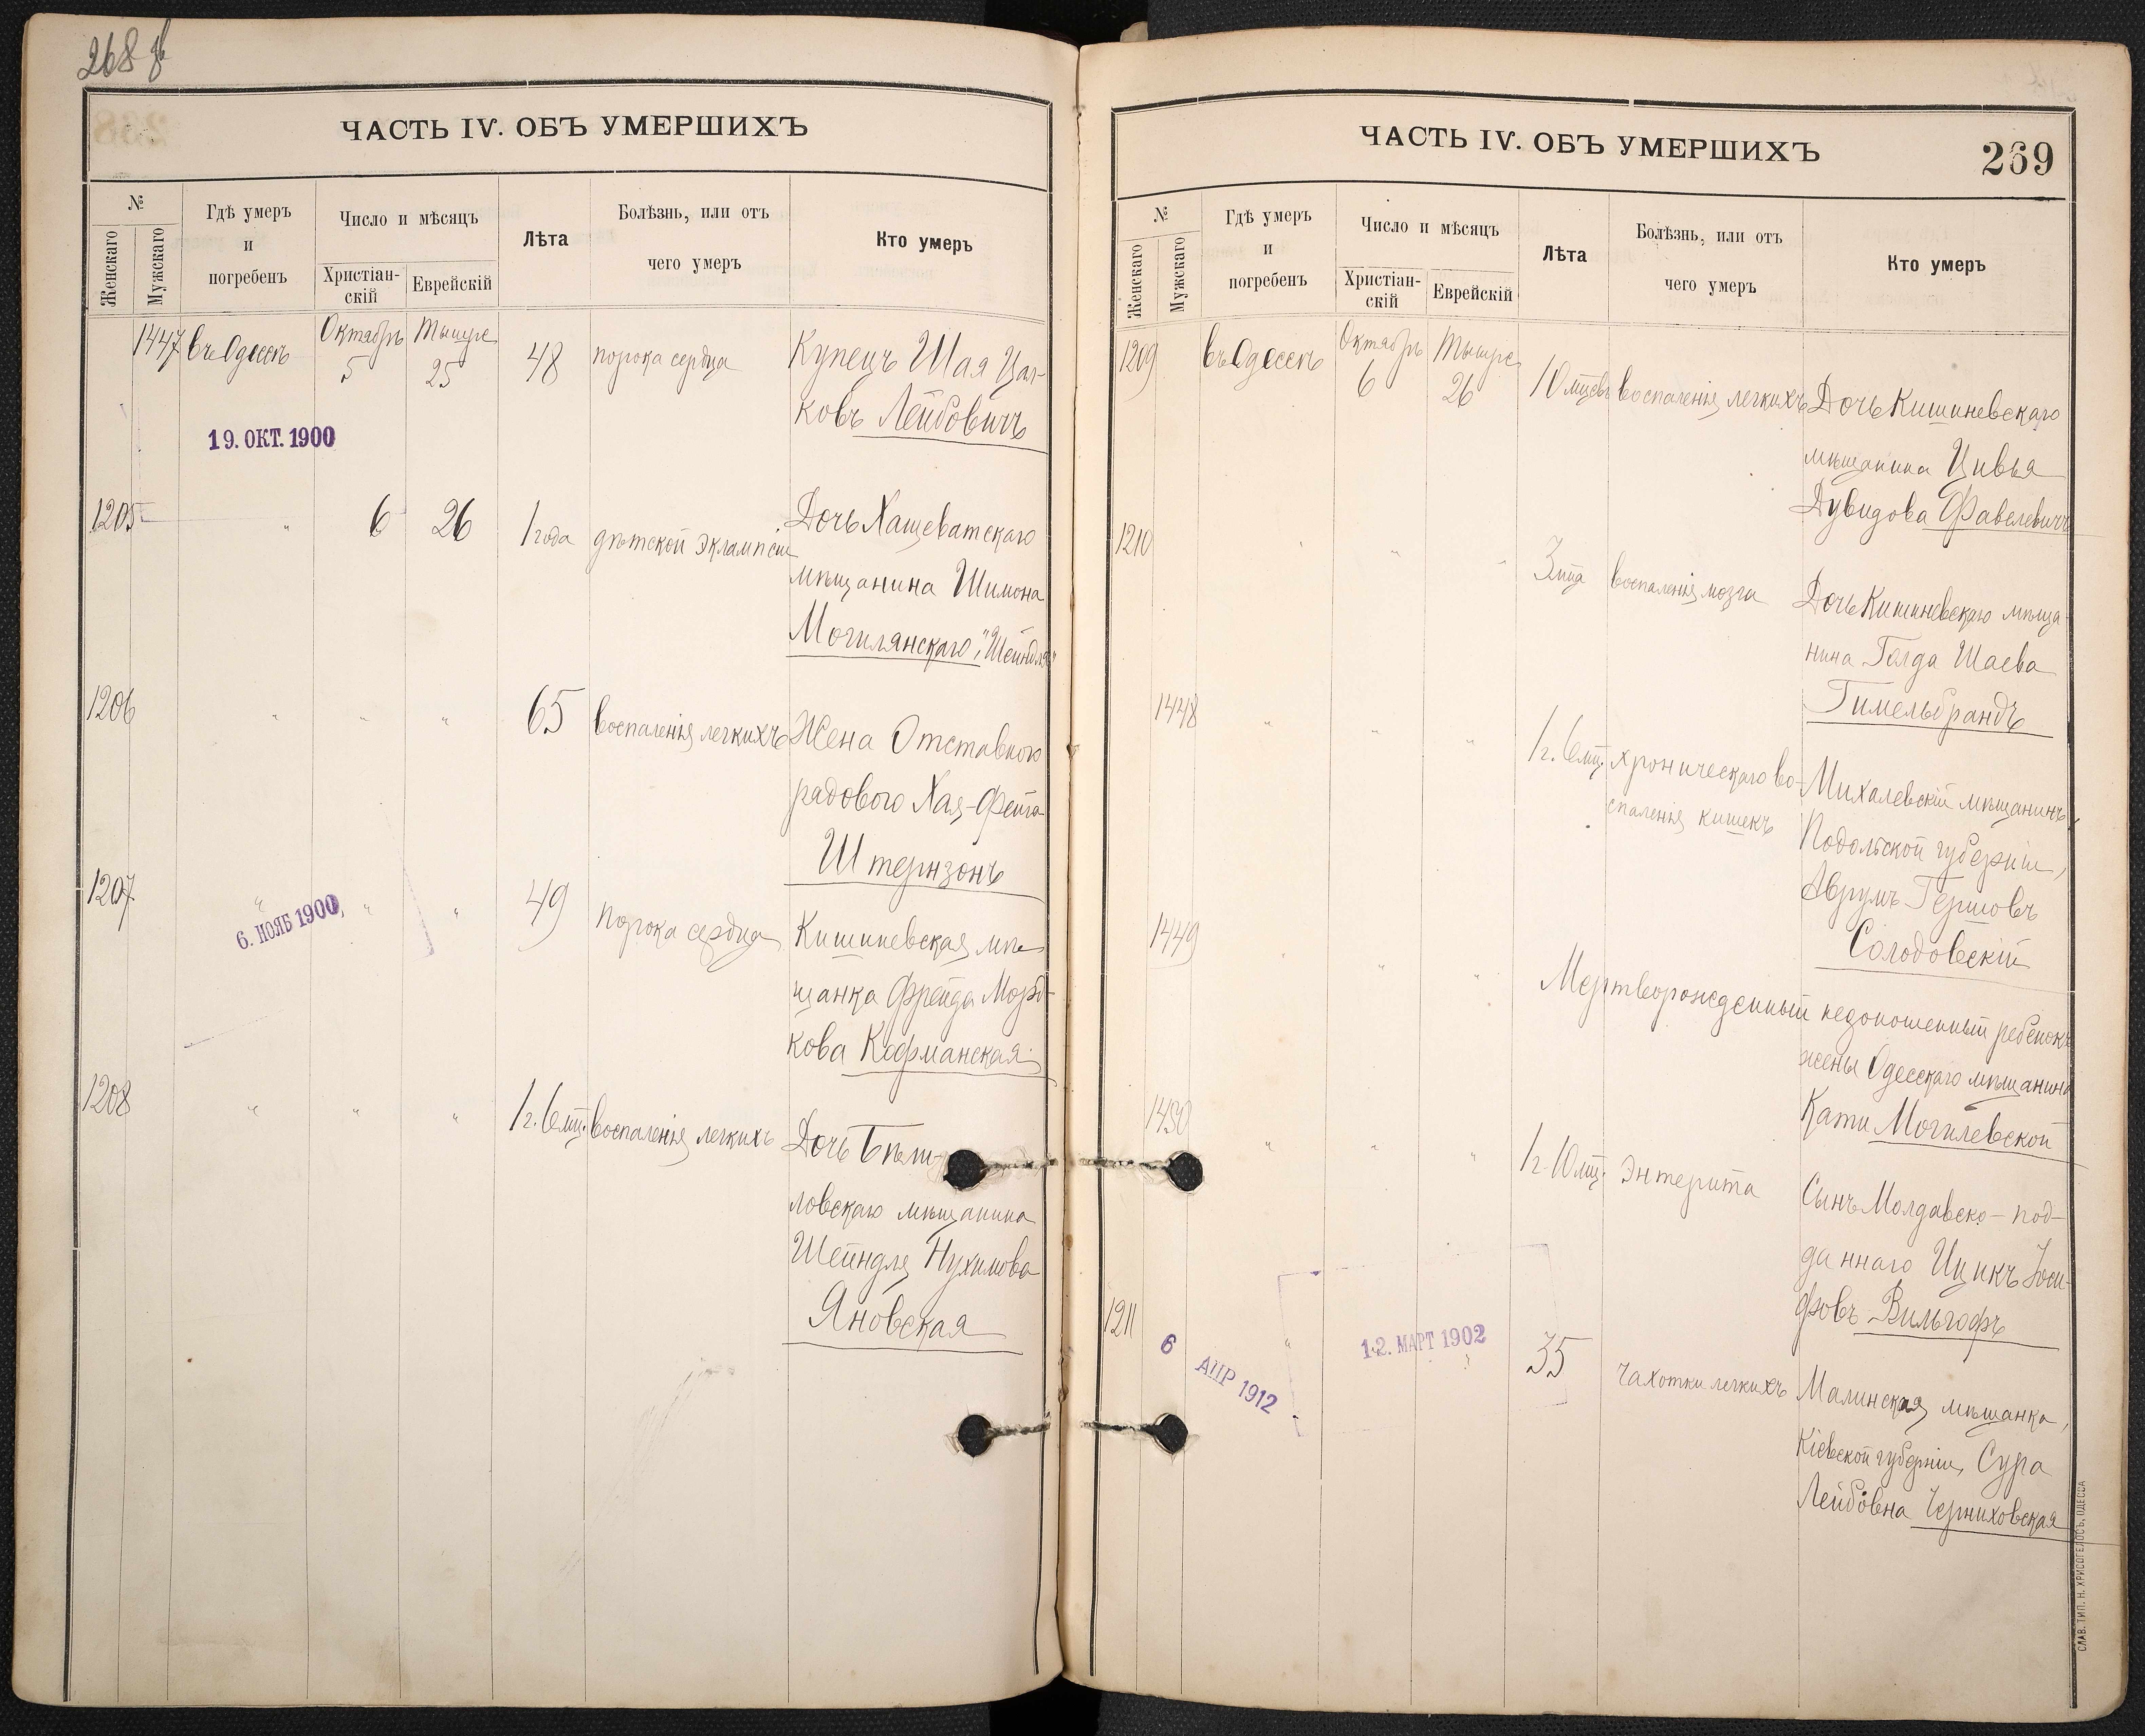 268 об
ЧАСТЬ IV. ОБЪ УМЕРШИХЪ
№
Женскаго
Мужскаго
Гдѣ умеръ
и
погребенъ
Число и мѣсяцъ
Христіан-
скій
Еврейскій
Лѣта
Болѣзнь, или отъ
чего умеръ
Кто умеръ
1447 въ Одессѣ Октябрь 5 Тышре 25 48 порока сердца Купецъ Шая Цал-
ковъ Лейбовичъ
19. ОКТ. 1900
1205 " 6 26 1 года дѣтской эклампсіи Дочь Хащеватскаго
мѣщанина Шимона
Могилянскаго, "Шейндля"
1206 " " " 65 воспаленія легкихъ Жена Отставного
рядового Хая-Фейга
Штернзонъ
1207 " " " 49 порока сердца Кишиневская мѣ-
щанка Фрейда Морд-
кова Кофманская
6. НОЯБ 1900
1208 " " " 1 г. 6 мц. воспаленія легкихъ Дочь Бѣли-
ловскаго мѣщанина
Шейндля Нухимова
Яновская
ЧАСТЬ IV. ОБЪ УМЕРШИХЪ
269
№
Женскаго
Мужскаго
Гдѣ умеръ
и
погребенъ
Число и мѣсяцъ
Христіан-
скій
Еврейскій
Лѣта
Болѣзнь, или отъ
чего умеръ
Кто умеръ
1209 въ Одессѣ Октябрь 6 Тышре 26 10 мцевъ воспаленія легкихъ Дочь Кишиневскаго
мѣщанина Цивья
Дувидова Фавелевичъ
1210 " " " 3 мца воспаленія мозга Дочь Кишиневскаго мѣща-
нина Голда Шаева
Гимельбрандъ
1448 " " " 1 г. 6 мц. хроническаго во- Михалевскій мѣщанинъ,
спаленія кишекъ Подольской губерніи,
Аврумъ Гершовъ
Солодовскій
1449 " " " Мертворожденный недоношенный ребенокъ
жены Одесскаго мѣщанина
Кати Могилевской
1450 " " " 1 г. 10 мц. Энтерита Сынъ Молдавско-под-
даннаго Ицикъ Іоси-
фовъ Вильгофъ
1211 " 35 чахотки легкихъ Малинская мѣщанка,
Кіевской губерніи, Сура
Лейбовна Черниховская
6 АПР 1912
12. МАРТ 1902
СЛАВ. ТИП. Н. ХРИСОГЕЛОСЪ, ОДЕССА